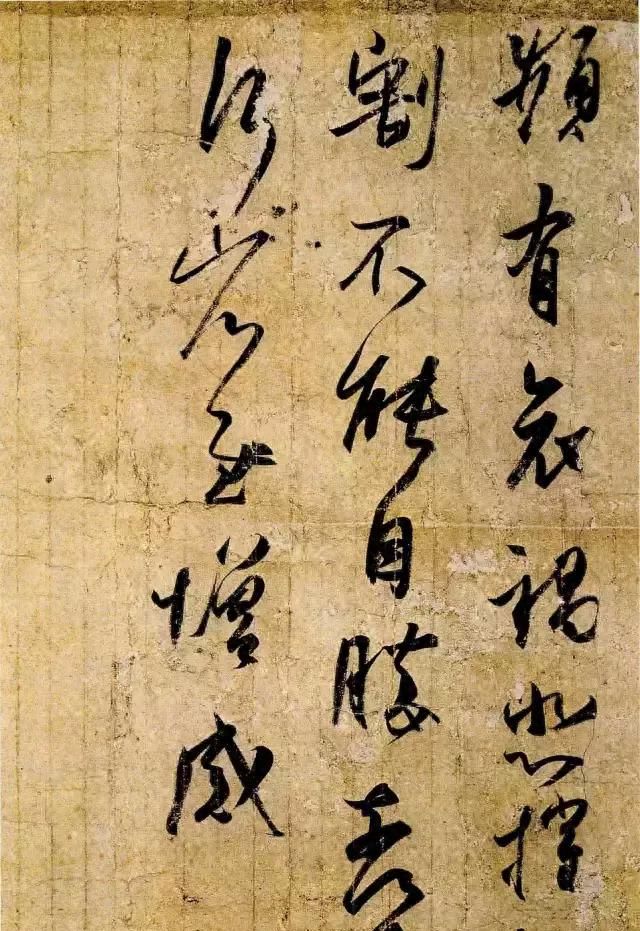 頻有哀禍悲摧
割不能自勝奈
何省慰增感